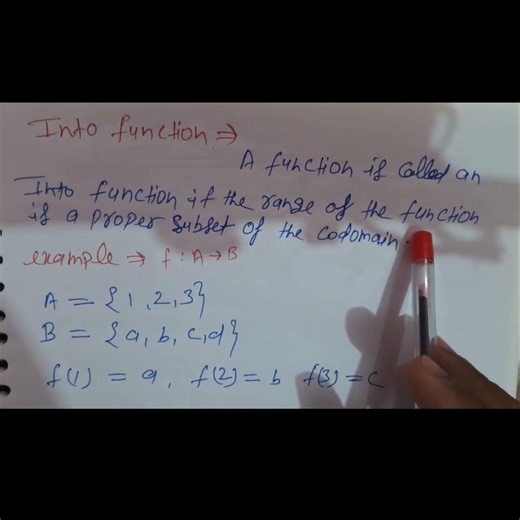 Into function ⇒
A function is called an
Into function if the range of the function
is a proper subset of the codomain.
example ⇒ f : A → B
A = {1, 2, 3}
B = {a, b, c, d}
f(1) = a, f(2) = b f(3) = c